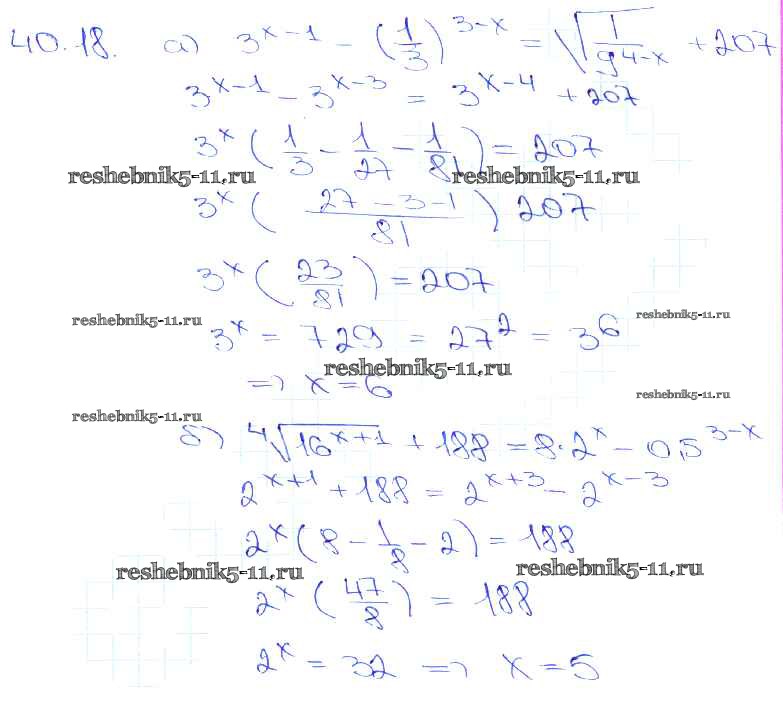 40.18. а) 3^{x-1} - (1/3)^{3-x} = √(1/9^{4-x}) + 207
3^{x-1} - 3^{x-3} = 3^{x-4} + 207
3^x (1/3 - 1/27 - 1/81) = 207
reshebnik5-11.ru reshebnik5-11.ru
3^x ( (27-3-1)/81 ) 207
3^x (23/81) = 207
reshebnik5-11.ru reshebnik5-11.ru
3^x = 729 = 27^2 = 3^6
reshebnik5-11.ru
=> x = 6
reshebnik5-11.ru
reshebnik5-11.ru
б) ⁴√(16^{x+1}) + 188 = 8·2^x - 0,5^{3-x}
2^{x+1} + 188 = 2^{x+3} - 2^{x-3}
2^x (8 - 1/8 - 2) = 188
reshebnik5-11.ru reshebnik5-11.ru
2^x (47/8) = 188
2^x = 32 => x = 5